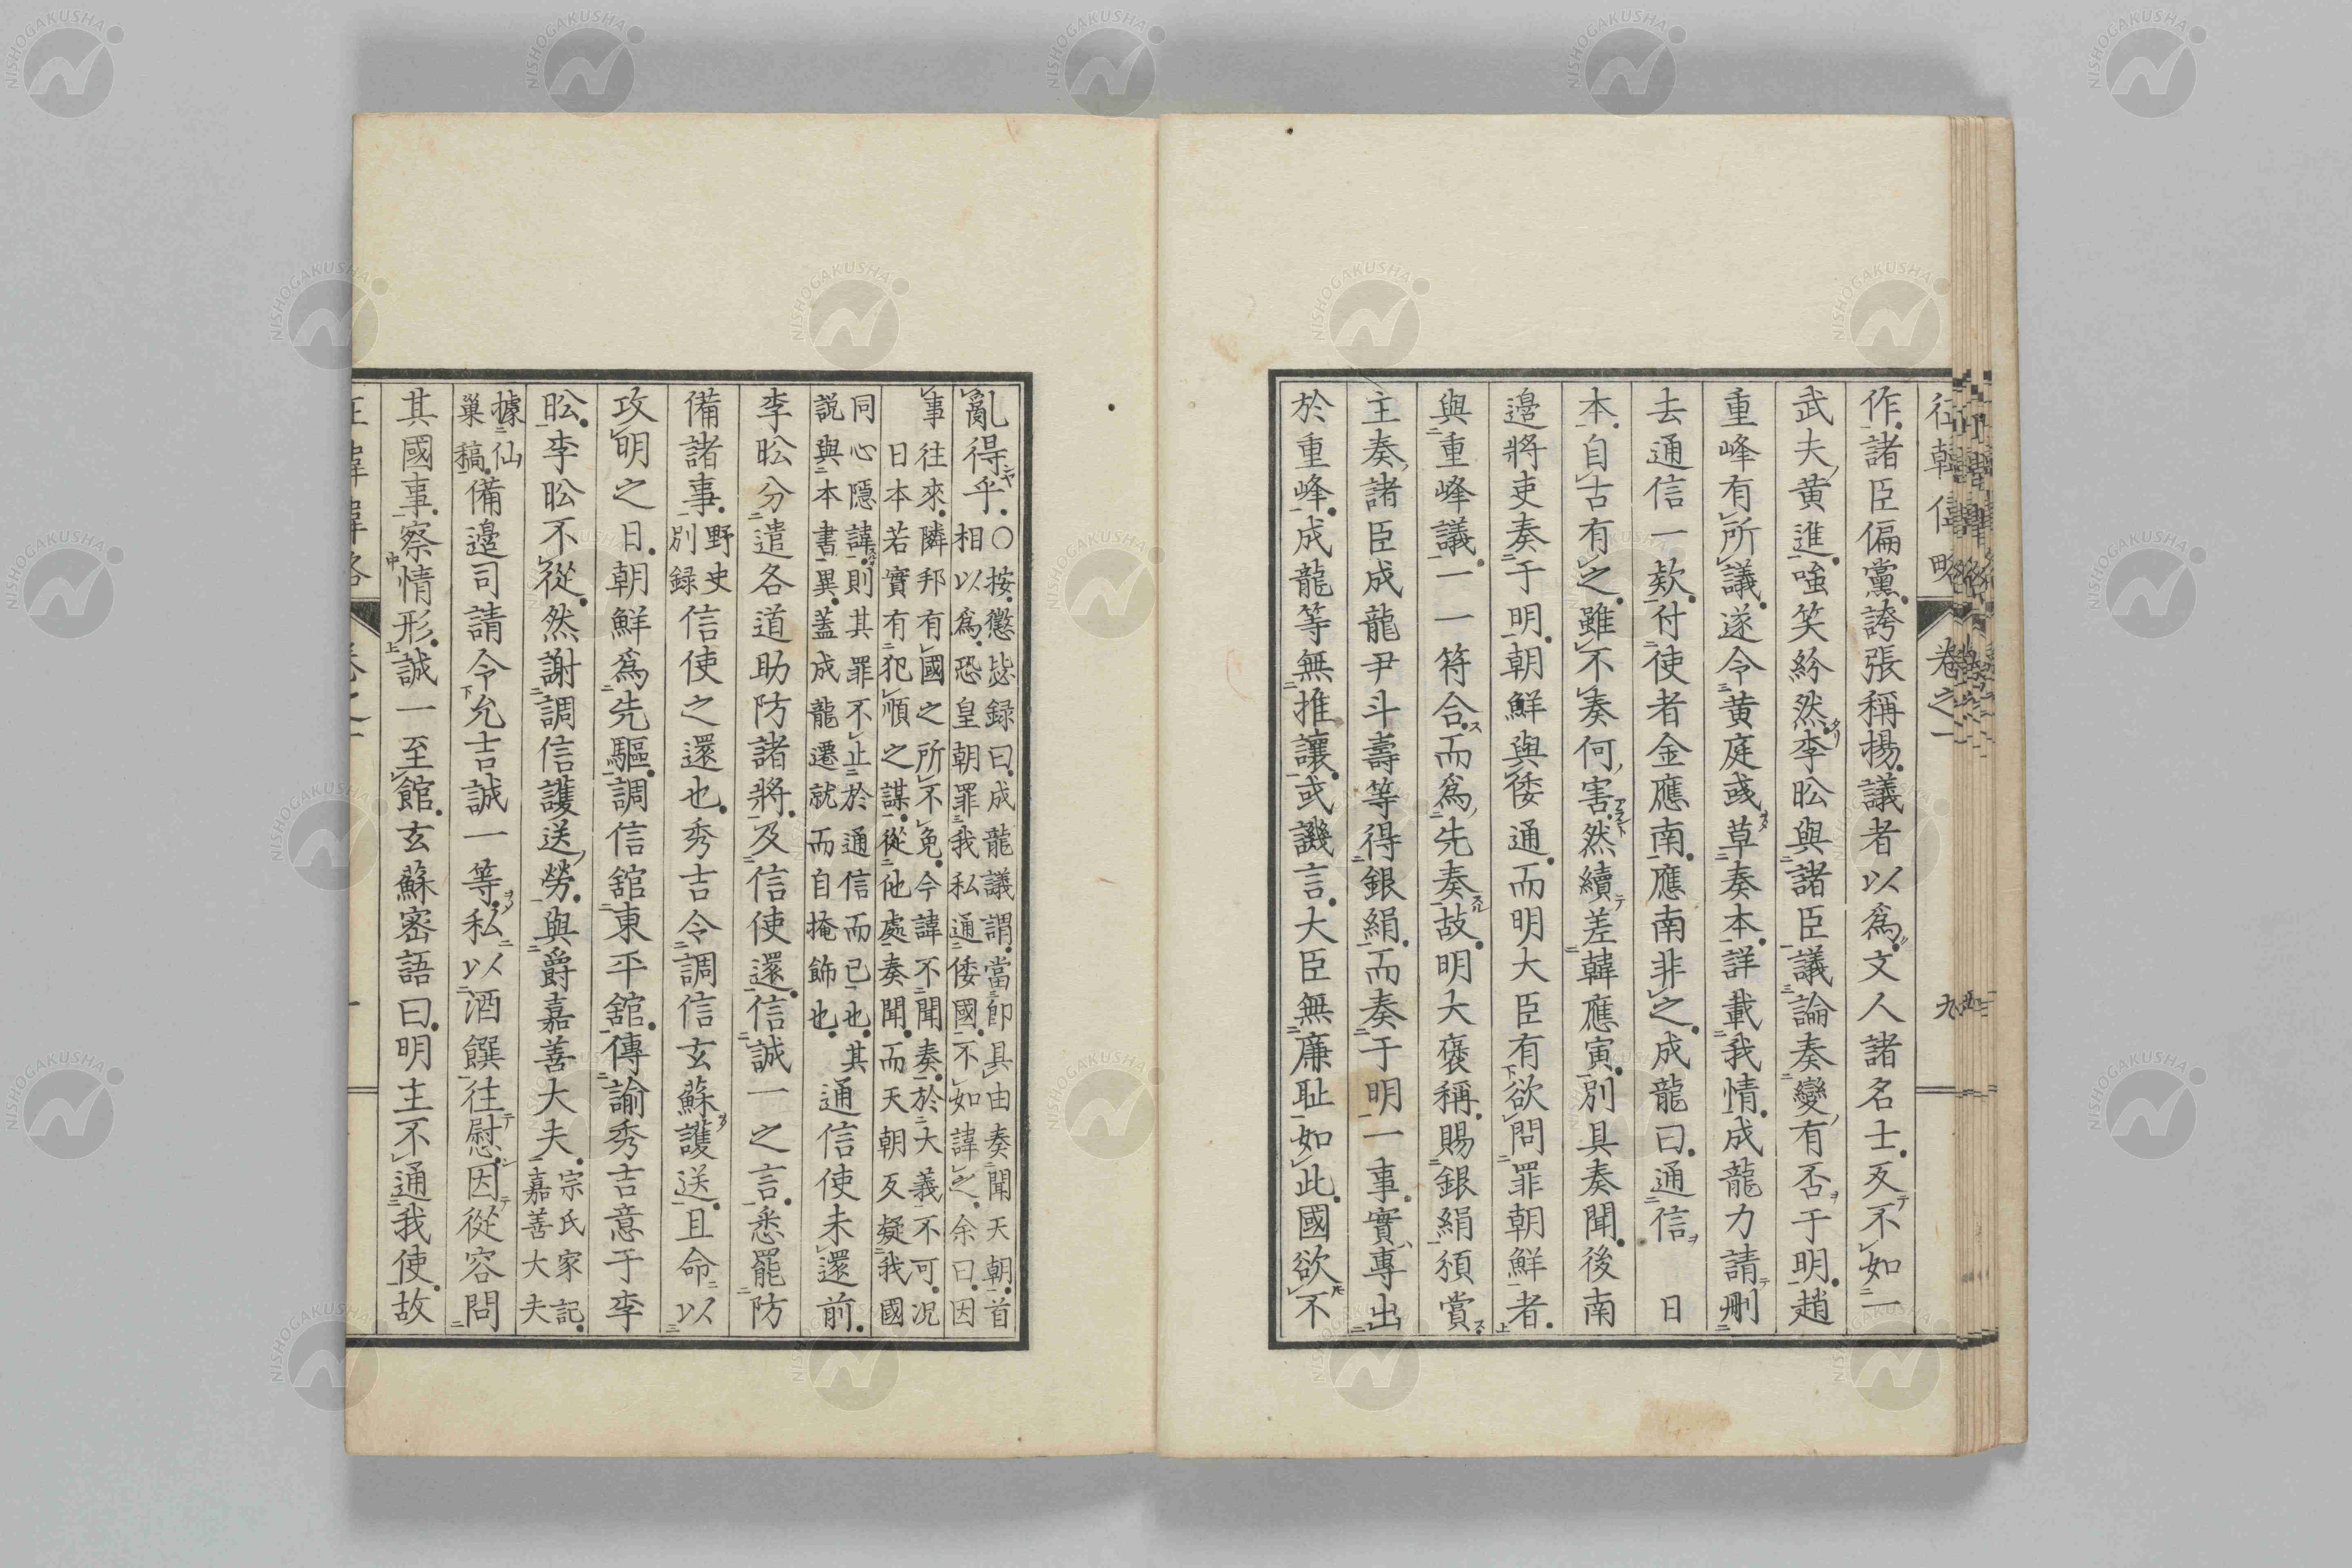 作諸臣偏黨誇張稱揚議者以爲文人諸名士反不如一
武夫黄進嗤笑紛然李昖與諸臣議論奏變有否于明趙
重峰有所議遂令黄庭彧草奏本詳載我情成龍力請刪
去通信一欵付使者金應南應南非之成龍曰通信 日
本自古有之雖不奏何害然續差韓應寅別具奏聞後南
邊將吏奏于明朝鮮與倭通而明大臣有欲問罪朝鮮者
與重峰議一一符合而爲先奏故明大褒稱賜銀絹須賞
主奏諸臣成龍尹斗壽等得銀絹而奏于明一事實專出
於重峰成龍等無推讓或譏言大臣無廉耻如此國欲不
亂得乎〇按懲毖録曰成龍議謂當即具由奏聞天朝首
相以爲恐皇朝罪我私通倭國不如諱之余曰因
事往來隣邦有國之所不免今諱不聞奏於大義不可况
日本若實有犯順之謀從他處奏聞而天朝反疑我國
同心隱諱則其罪不止於通信而已也其
説與本書異蓋成龍遷就而自掩飾也
通信使未還前
李昖分遣各道助防諸將及信使還信誠一之言悉罷防
備諸事野史
別録
信使之還也秀吉令調信玄蘇護送且命以
攻明之日朝鮮爲先驅調信舘東平舘傳諭秀吉意于李
昖李昖不從然謝調信護送勞與爵嘉善大夫宗氏家記
嘉善大夫
據仙
巢稿
備邊司請令允吉誠一等私以酒饌往慰因從容問
其國事察情形誠一至館玄蘇密語曰明主不通我使故
卷之一
九